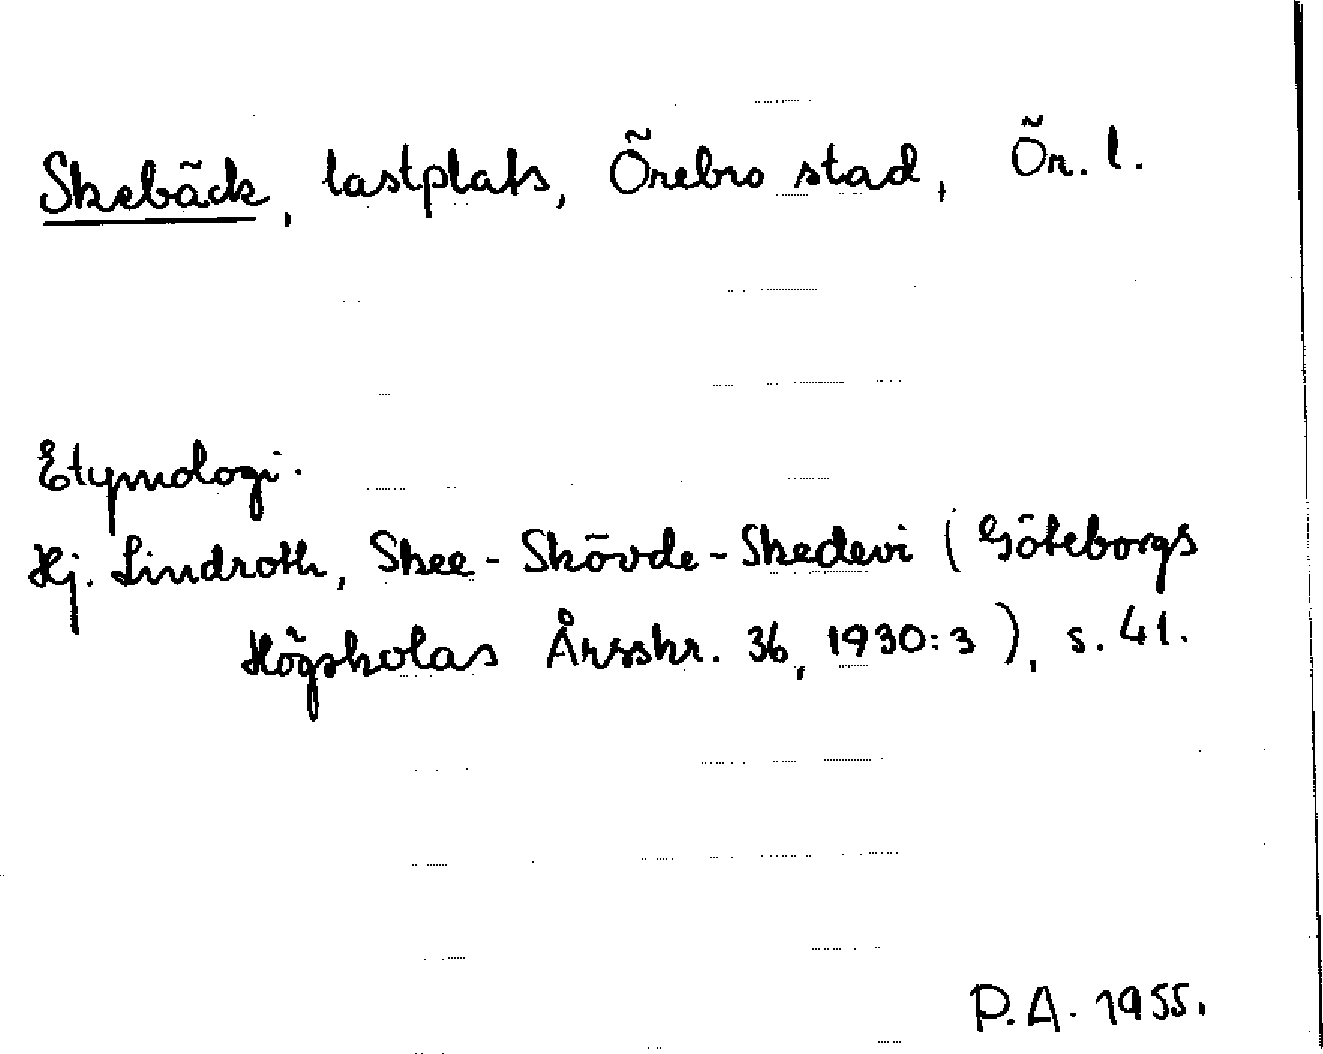 Skebäck, lastplats, Örebro stad, Ör. l.
Etymologi.
Hj. Lindroth, Skee - Skövde - Skedevi (Göteborgs
Högskolas Årsskr. 36, 1930:3), s. 41.
P.A. 1955.